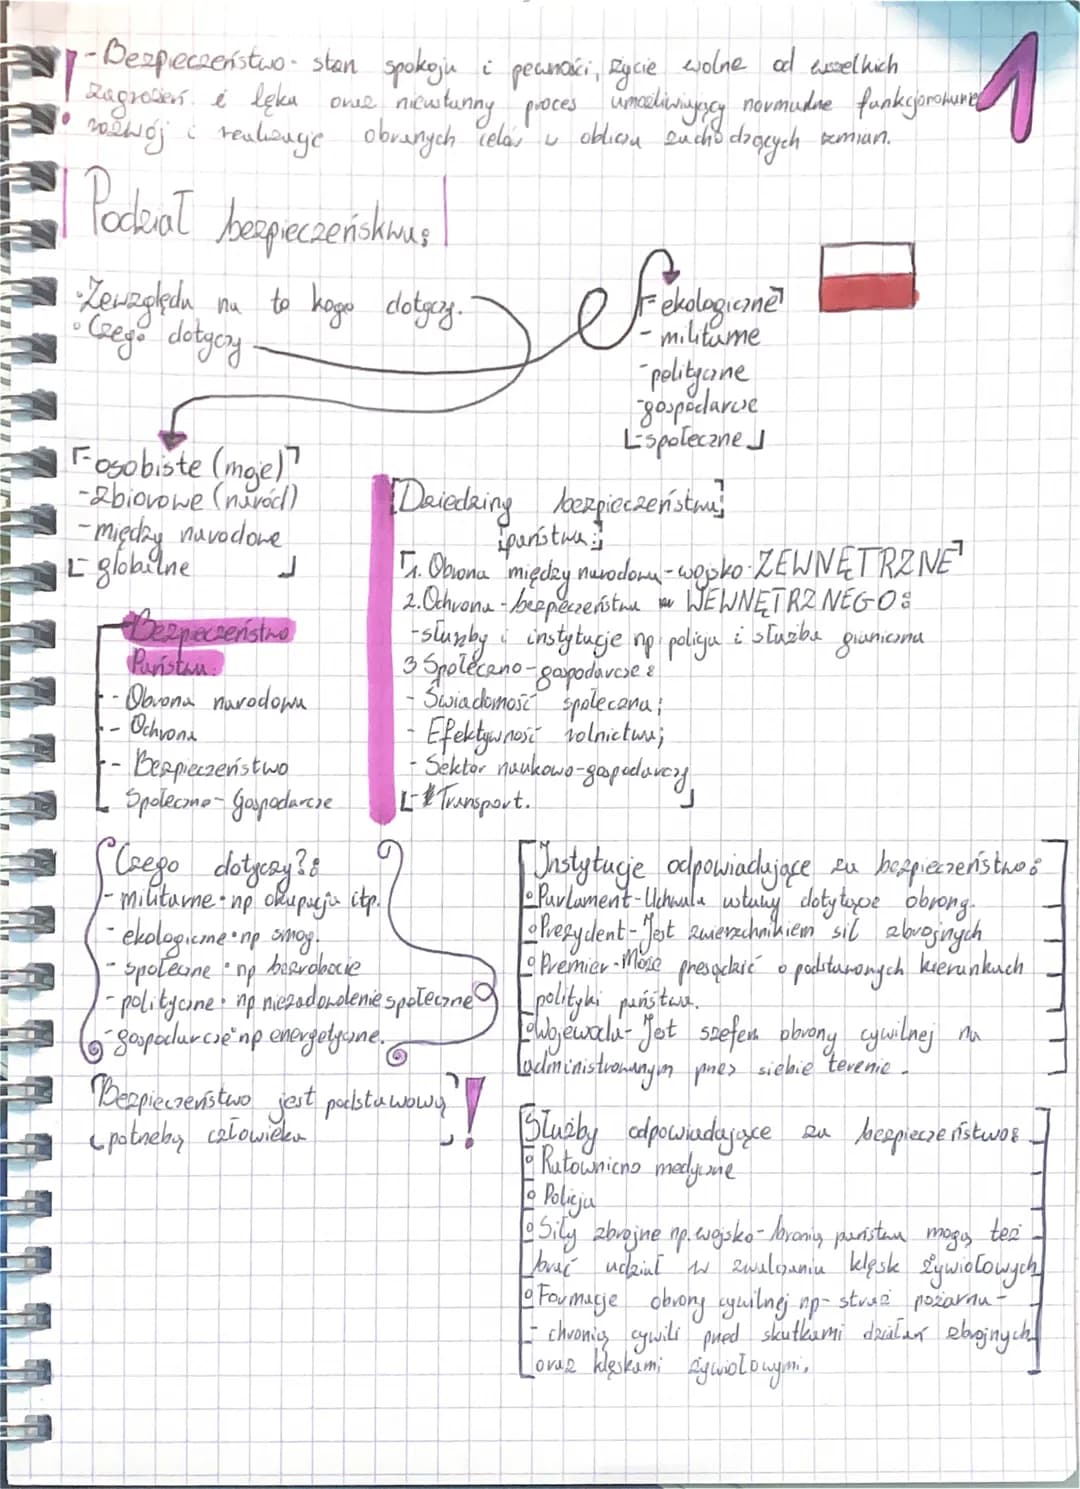 1
- Bezpieczeństwo - stan spokoju i pewności, życie wolne od wszelkich
zagrożeń i lęku oraz nieustanny proces umożliwiający normudne funkcjonowanie
rozwój i realizację obranych celów w obliczu zachodzących zmian.
Podział bezpieczeństwa:
• Zewzględu na to kogo dotyczy.
• Czego dotyczy
- ekologiczne
- militarne
- polityczne
- gospodarcze
- społeczne
- osobiste (moje)
- zbiorowe (naród)
- między narodowe
- globalne
Dziedziny bezpieczeństwa
państwa:
1. Obrona między narodowa - wojsko - ZEWNĘTRZNE
2. Ochrona - bezpieczeństwa WEWNĘTRZNEGO:
- służby i instytucje np policja i służba graniczna
3 Społeczno - gospodarcze:
- Świadomość społeczna;
- Efektywność rolnictwa;
- Sektor naukowo-gospodarczy
- Transport.
Bezpieczeństwo
Państwa:
- Obrona narodowa
- Ochrona
- Bezpieczeństwo
Społeczno - Gospodarcze
Czego dotyczy?:
- militarne - np okupacja itp.
- ekologiczne • np smog.
- społeczne • np bezrobocie
- polityczne • np niezadowolenie społeczne
- gospodarcze • np energetyczne.
Bezpieczeństwo jest podstawową
potrzebą człowieka !
Instytucje odpowiadające za bezpieczeństwo:
• Parlament - Uchwala ustawy dotyczące obrony.
• Prezydent - Jest zwierzchnikiem sił zbrojnych
• Premier - Może przesądzić o podstawowych kierunkach
polityki państwa.
• Wojewoda - Jest szefem obrony cywilnej na
administrowanym przez siebie terenie.
Służby odpowiadające za bezpieczeństwo:
• Ratowniczo medyczne
• Policja
• Siły zbrojne np. wojsko - bronią państwa mogą też
brać udział w zwalczaniu klęsk żywiołowych
• Formacje obrony cywilnej np - straż pożarna -
- chronią cywili przed skutkami działań zbrojnych
oraz klęskami żywiołowymi.